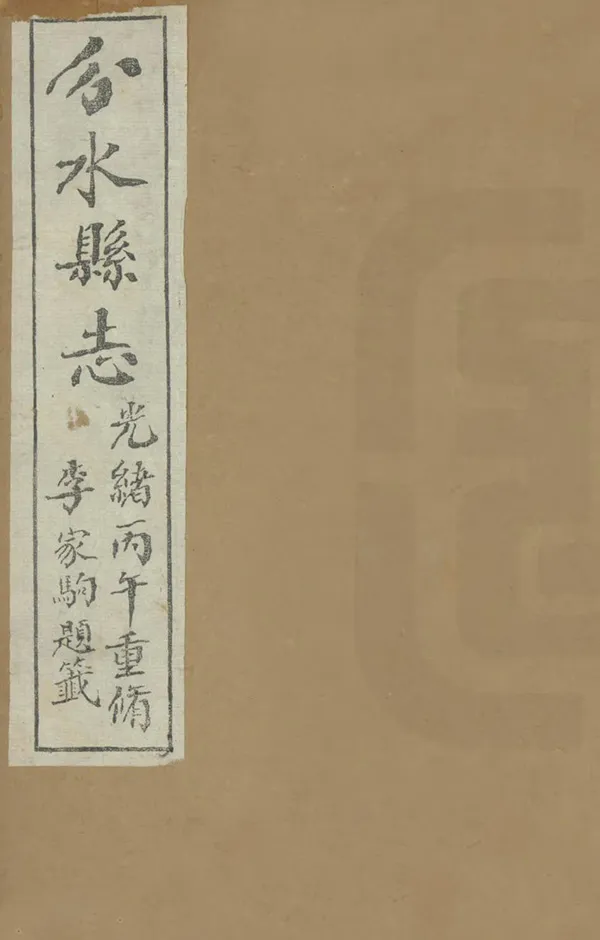 分水縣志
光緒丙午重脩
李家駒題籤